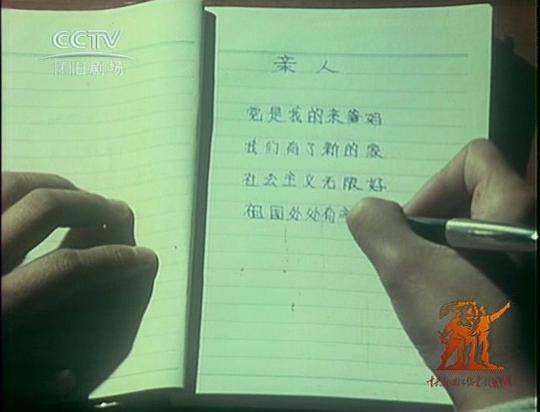 CCTV
怀旧剧场
亲 人
党是我的亲爹妈
我们有了新的家
社会主义无限好
祖国处处有